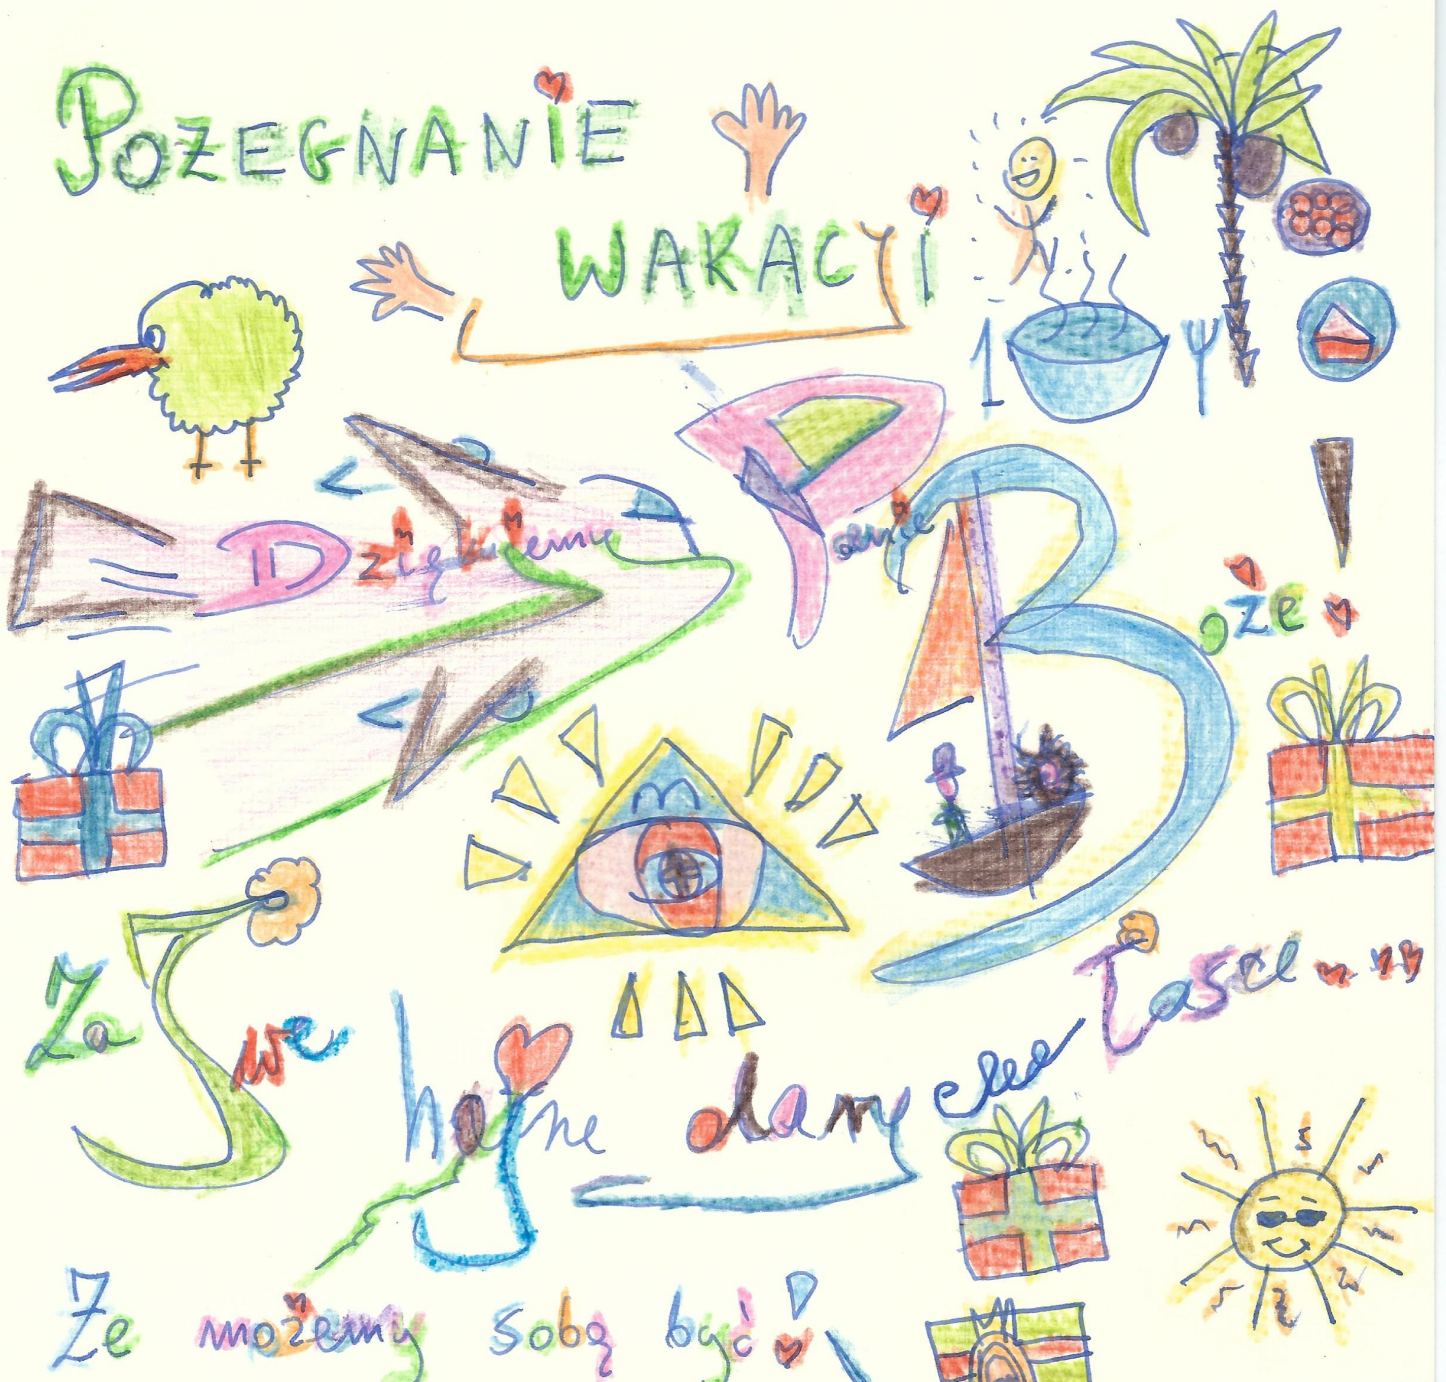 POZEGNANIE
WAKACYi
Dziękujemy Panie Boże!
Za Swe hojne dary Łasce
Że możemy sobą być!